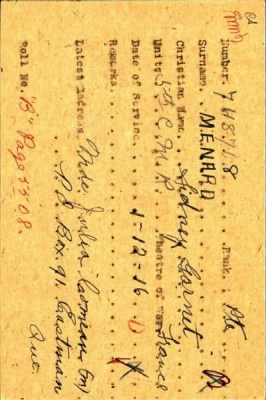 Number. 748728. Rank. Pte
Surname. MENARD
Christian Name. Sidney Garnet
Unit. 5 B. C. M. R. Theatre of War. France
Date of Service. 1-12-16 D
Remarks.
Latest Address. Mde. Julia Comeau (m)
P.O. Box. 91. Eastman
Que.
Roll No. "B" Page 5508.